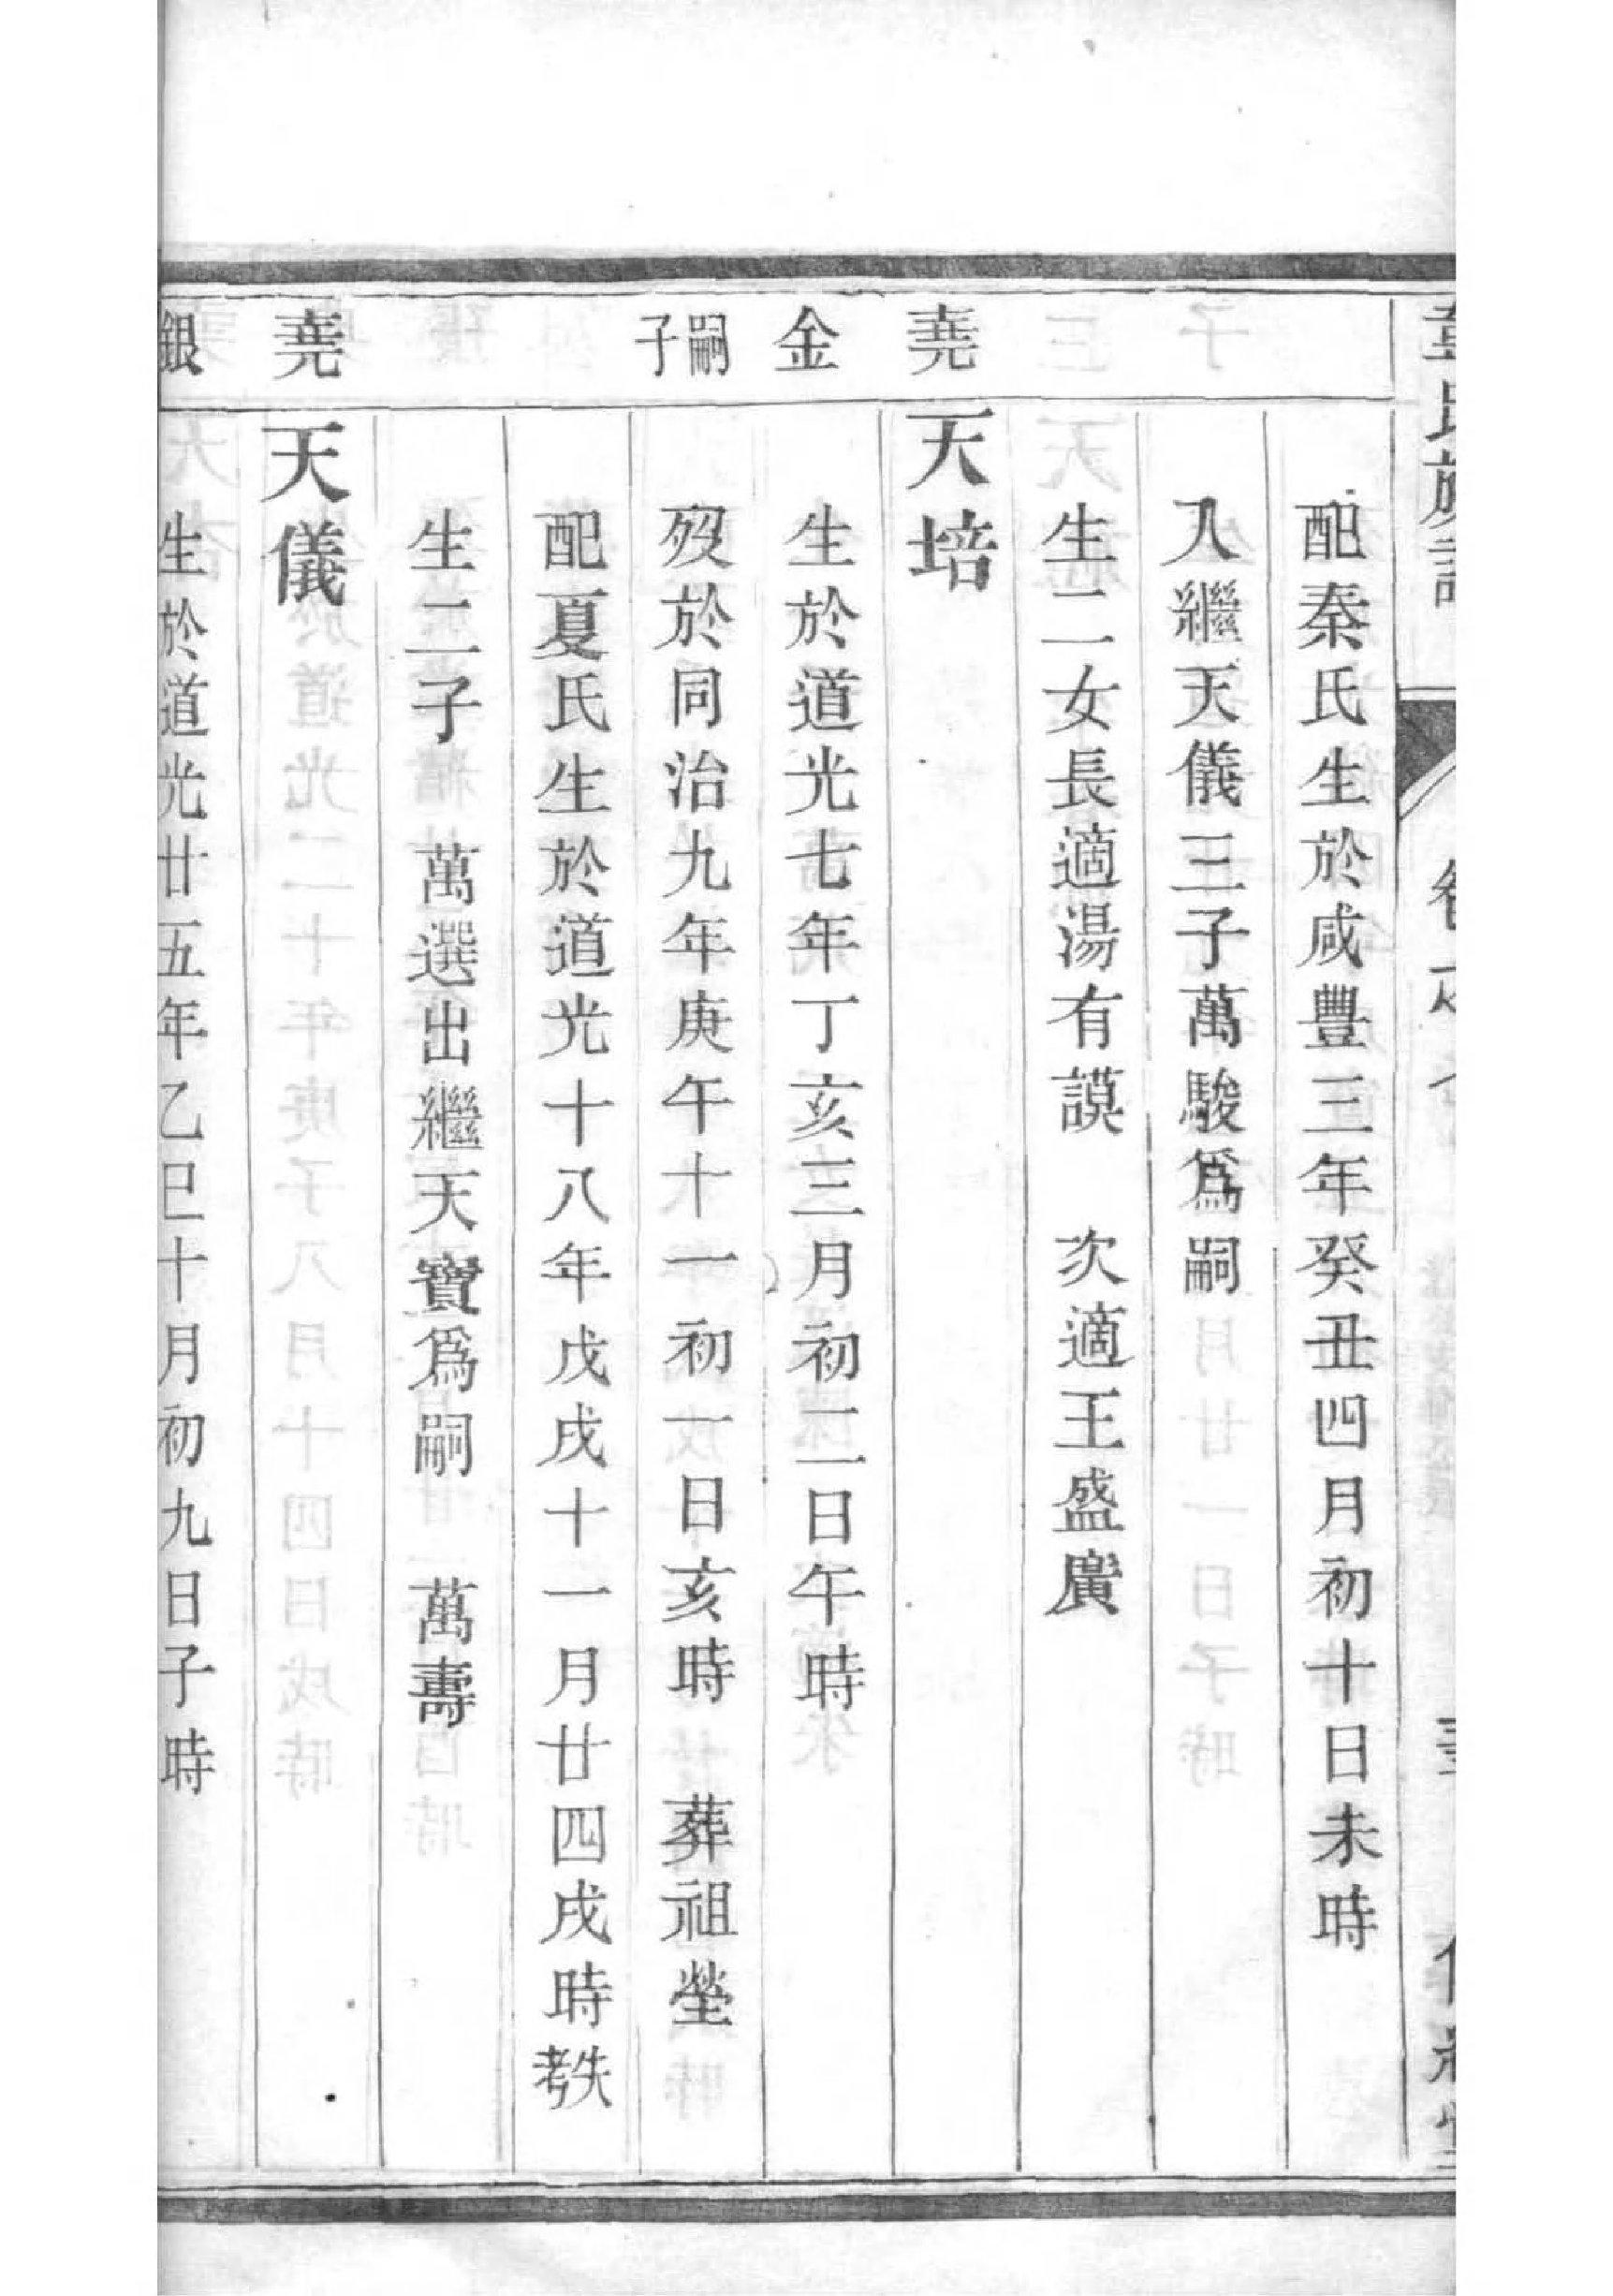 氏族譜
配秦氏生於咸豐三年癸丑四月初十日未時
入繼天儀三子萬駿爲嗣
生二女長適湯有謨　次適王盛廣
堯
天培
金
生於道光七年丁亥三月初二日午時
嗣子
歿於同治九年庚午十一初一日亥時　葬祖塋
配夏氏生於道光十八年戊戌十一月廿四戌時考失
生二子　萬選出繼天寶爲嗣　萬壽
堯
天儀
銀
生於道光廿五年乙巳十月初九日子時